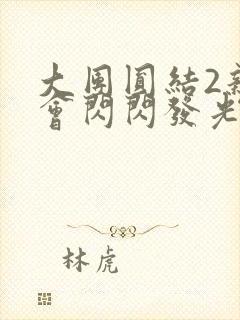 大團圓結2新
會閃閃發光
林虎